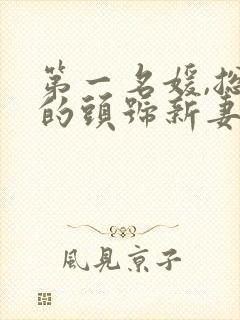 第一名媛,總
的頭號新妻
風見京子